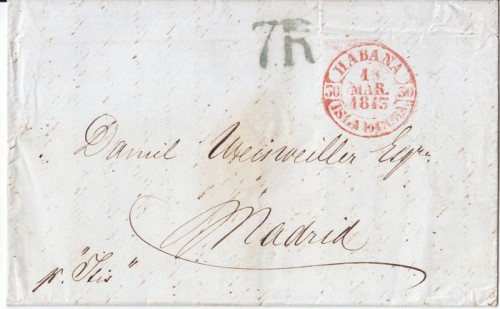 7R
HABANA
30 30
MAR.
1843
ISLA DE CUBA
Daniel Weisweiller Esqre
Madrid
pr. "Isis"